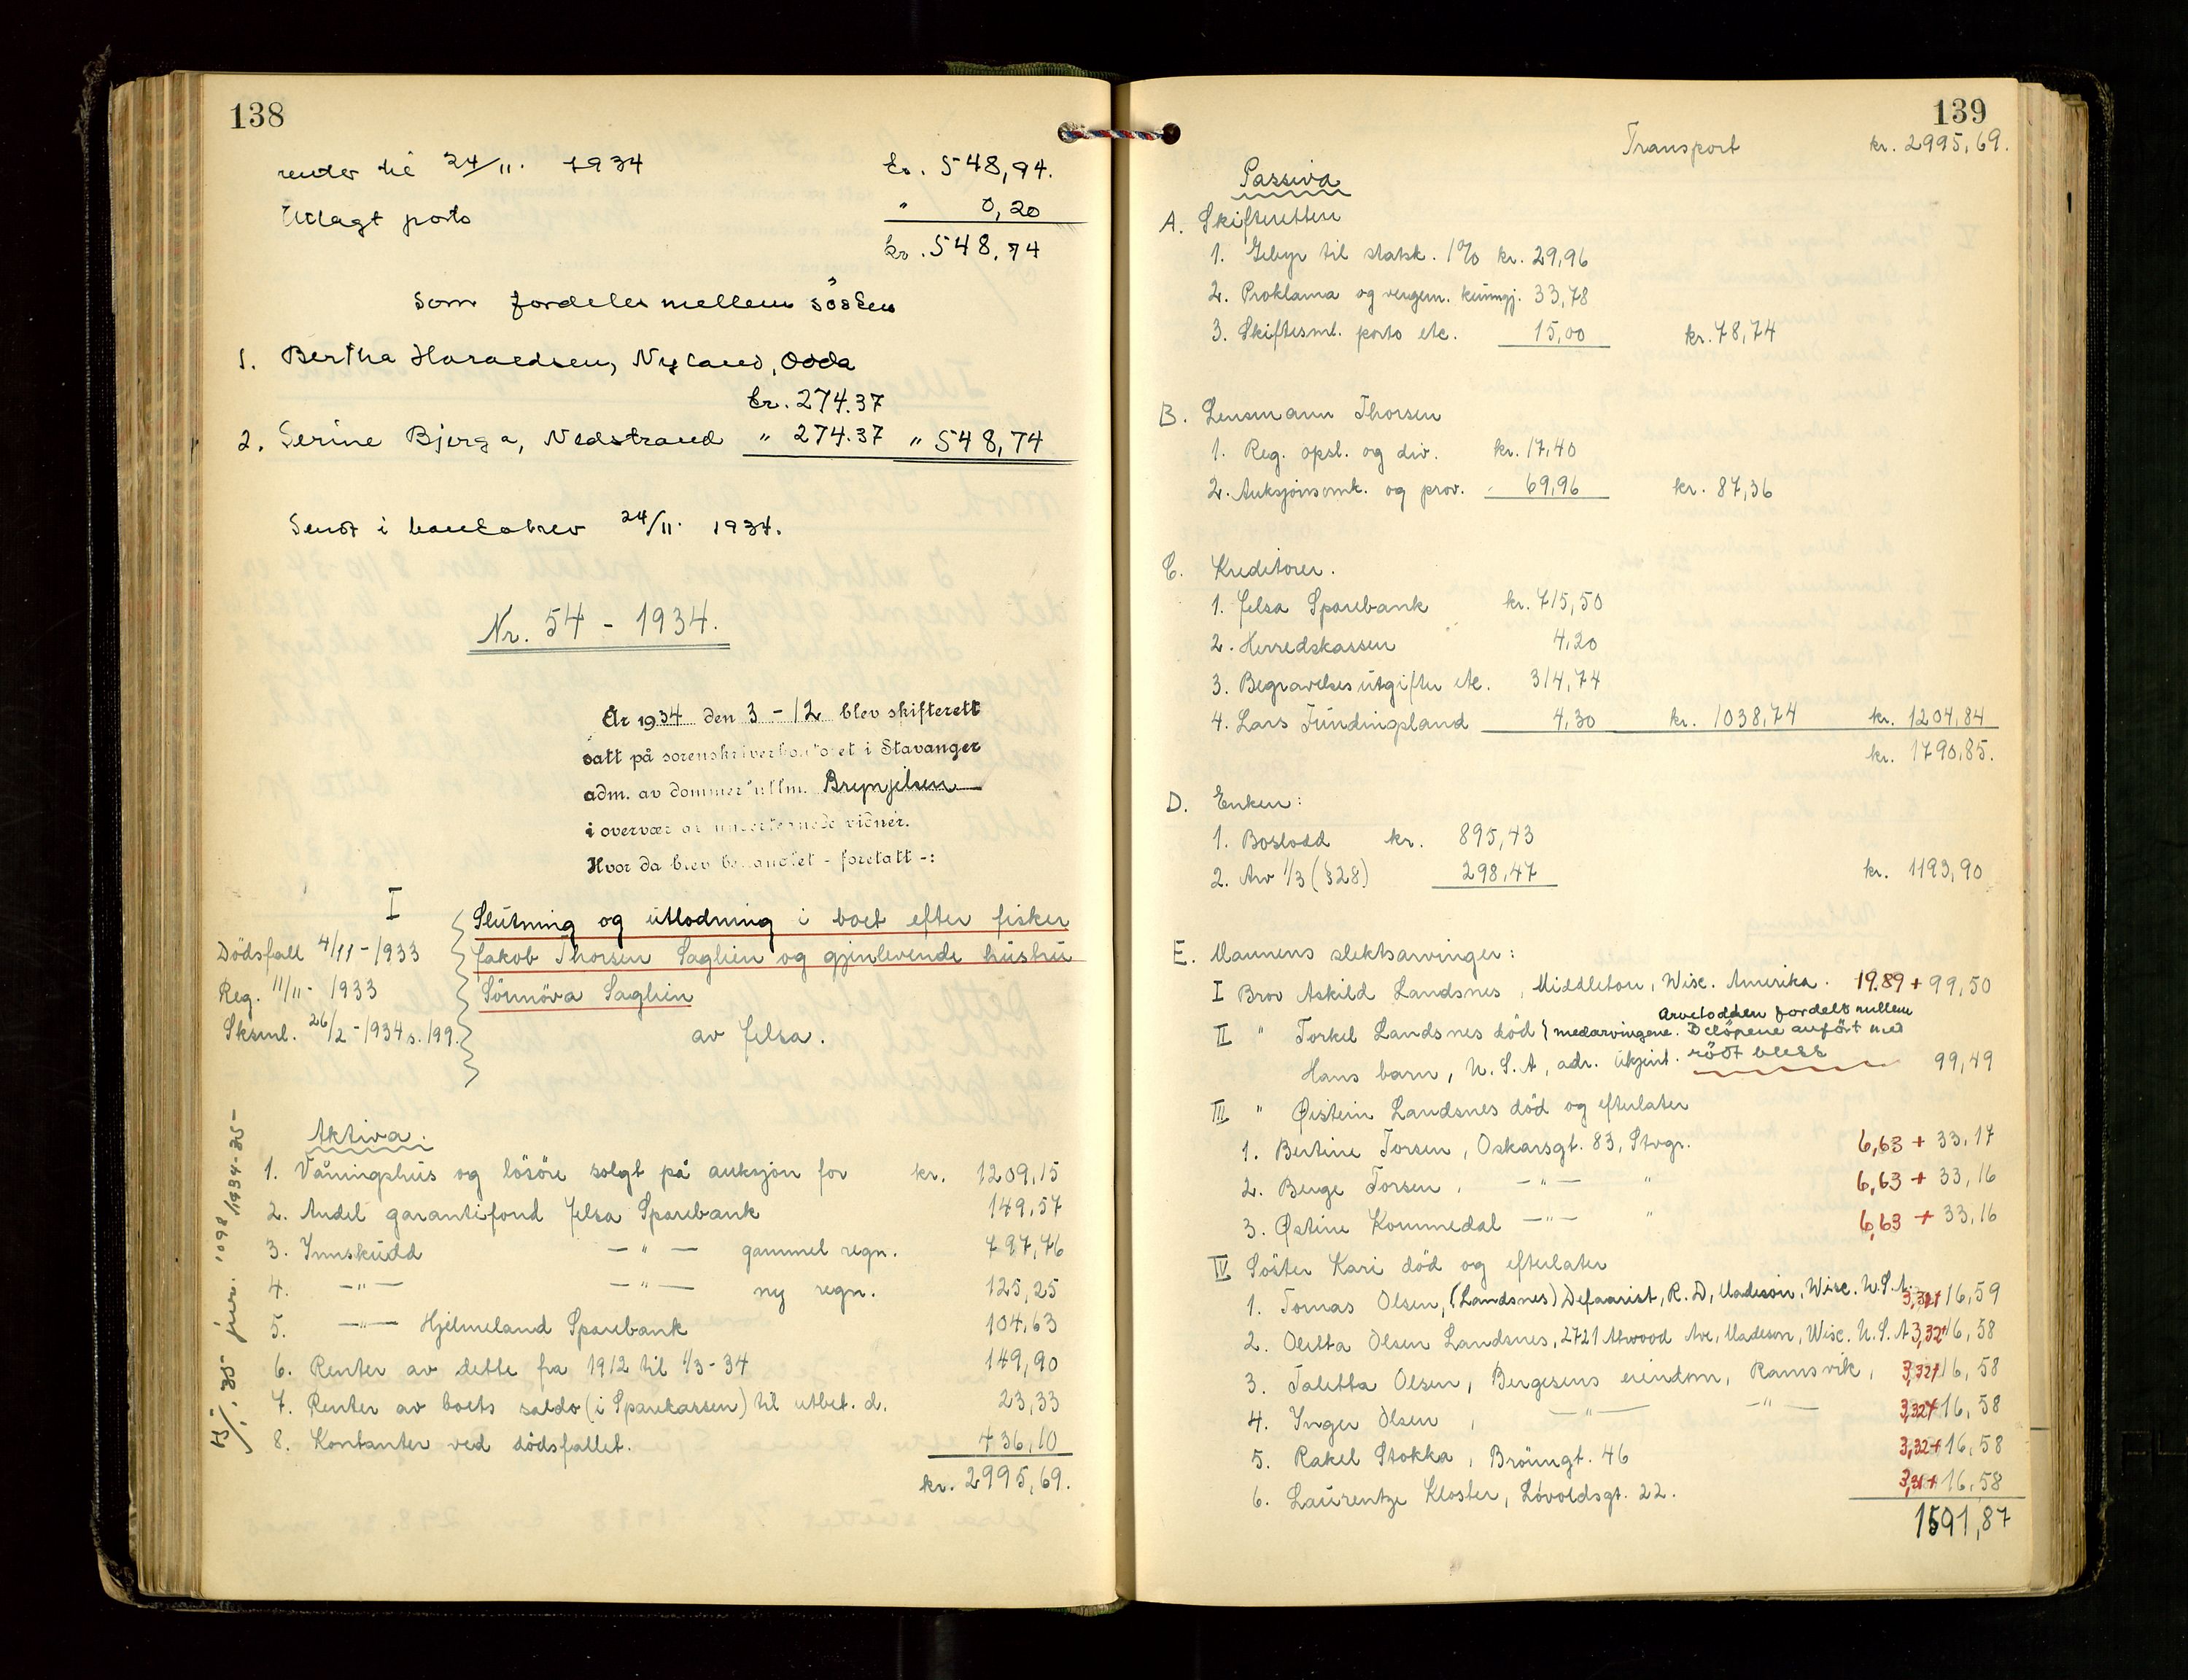 138
renter til 24/11. 1934 kr. 548,94.
Utlagt porto " 0,20
kr. 548,74
som fordeles mellem søsken
1. Bertha Haraldsen, Nyland, Odda
kr. 274.37
2. Serine Bjerga, Nedstrand " 274.37 " 548,74
Sendt i bankobrev 24/11. 1934.
Nr. 54 - 1934.
År 1934 den 3 - 12 blev skifterett
satt på sorenskriverkontoret i Stavanger
adm. av dommerfullm. Brynjelsen
i overvær av undertegnede vidner.
Hvor da blev behandlet - foretatt -:
I
Dödsfall 4/11 - 1933
Reg. 11/11 - 1933
Sksml. 26/2 - 1934 s. 199.
Slutning og utlodning i boet efter fisker
Jakob Thorsen Saghein og gjenlevende hustru
Sönnöva Saghein
av Jelsa.
Aktiva.
1. Våningshus og lösöre solgt på auksjon for kr. 1209,15
2. Andel garantifond Jelsa Sparebank 149,57
3. Innskudd — " — gammel regn. 797,76
4. — " — — " — ny regn. 125,25
5. — " — Hjelmeland Sparebank 104,63
6. Renter av dette fra 1912 til 1/3 - 34 149,90
7. Renter av boets saldo (i Sparekassen) til utbet. d. 23,33
8. Kontanter ved dödsfallet. 436,10
kr. 2995,69.
139
Transport kr. 2995,69.
Passiva
A. Skifteretten
1. Gebyr til statsk. 1% kr. 29,96
2. Proklama og vergem. kunngj. 33,78
3. Skiftesml. porto etc. 15,00 kr. 78,74
B. Lensmann Thorsen
1. Reg. opsl. og div. kr. 17,40
2. Auksjonsomk. og prov. - 69,96 kr. 87,36
C. Kreditorer.
1. Jelsa Sparebank kr. 715,50
2. Herredskassen 4,20
3. Begravelsesutgifter etc. 314,74
4. Lars Tundingsland 4,30 kr. 1038,74 kr. 1204,84
kr. 1790,85.
D. Enken:
1. Boslodd kr. 895,43
2. Arv 1/3 (§28) 298,47 kr. 1193,90
E. Mannens slektsarvinger:
I Bror Askild Landsnes, Middleton, Wisc. Amerika. 19.89 + 99,50
Arvelodden fordelt mellem
II " Torkel Landsnes död } medarvingene. Belöpene anfört med
Hans barn, U. S. A, adr. ukjent. rödt blekk 99,49
III " Øistein Landsnes död og efterlater
1. Bertine Torsen, Oskarsgt. 83, Stvgr. 6,63 + 33,17
2. Berge Torsen, — " — " 6,63 + 33,16
3. Østine Kommedal — " — " 6,63 + 33,16
IV Söster Kari död og efterlater
1. Tomas Olsen, (Landsnes) Defaarist, R. D, Madeson, Wisc. U. S. A. 3,32+ 16,59
2. Oletta Olsen Landsnes, 2721 Atwood Ave, Madeson, Wisc. U. S. A 3,32+ 16,58
3. Taletta Olsen, Bergesens eiendom, Ramsvik, 3,32+ 16,58
4. Inger Olsen, — " — — " — 3,32+ 16,58
5. Rakel Stokka, Bröungt. 46 3,32+ 16,58
6. Laurentze Kloster, Lövoldsgt. 22. 3,31+ 16,58
1591,87